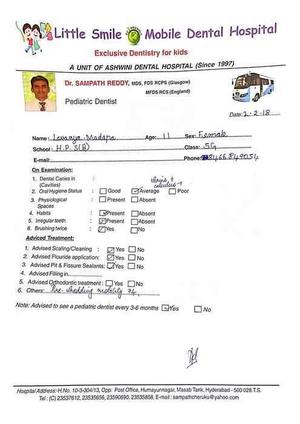 Little Smile Mobile Dental Hospital
Exclusive Dentistry for kids
A UNIT OF ASHWINI DENTAL HOSPITAL (Since 1997)
Dr. SAMPATH REDDY, MDS, FDS RCPS (Glasgow)
MFDS RCS (England)
Pediatric Dentist
Date: 2-2-18
Name: Lavanya Madapa Age: 11 Sex: Female
School: H.P.S(B) Class: 5G
E-mail: Phone: 8466849054
On Examination:
1. Dental Caries in :
(Cavities)
2. Oral Hygiene Status : Good Average Poor
3. Physiological : Present Absent
Spaces
4. Habits : Present Absent
5. Irregular teeth : Present Absent
6. Brushing twice : Yes No
Adviced Treatment:
1. Advised Scaling/Cleaning : Yes No
2. Advised Flouride application: Yes No
3. Advised Pit & Fissure Sealants: Yes No
4. Advised Filling in
5. Advised Orthodontic treatment : Yes No
6. Others: Pre-shedding mobility
Note: Advised to see a pediatric dentist every 3-6 months Yes No
Hospital Address: H.No. 10-5-304/13, Opp: Post Office, Humayunnagar, Masab Tank, Hyderabad - 500 028.T.S.
Tel: (C) 23537612, 23535656, 23590690, 23535858. E-mail : sampathcheruku@yahoo.com